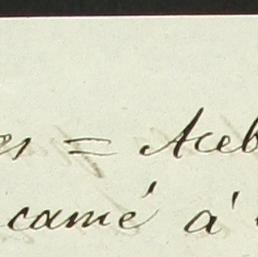 es = Aceb
camé á